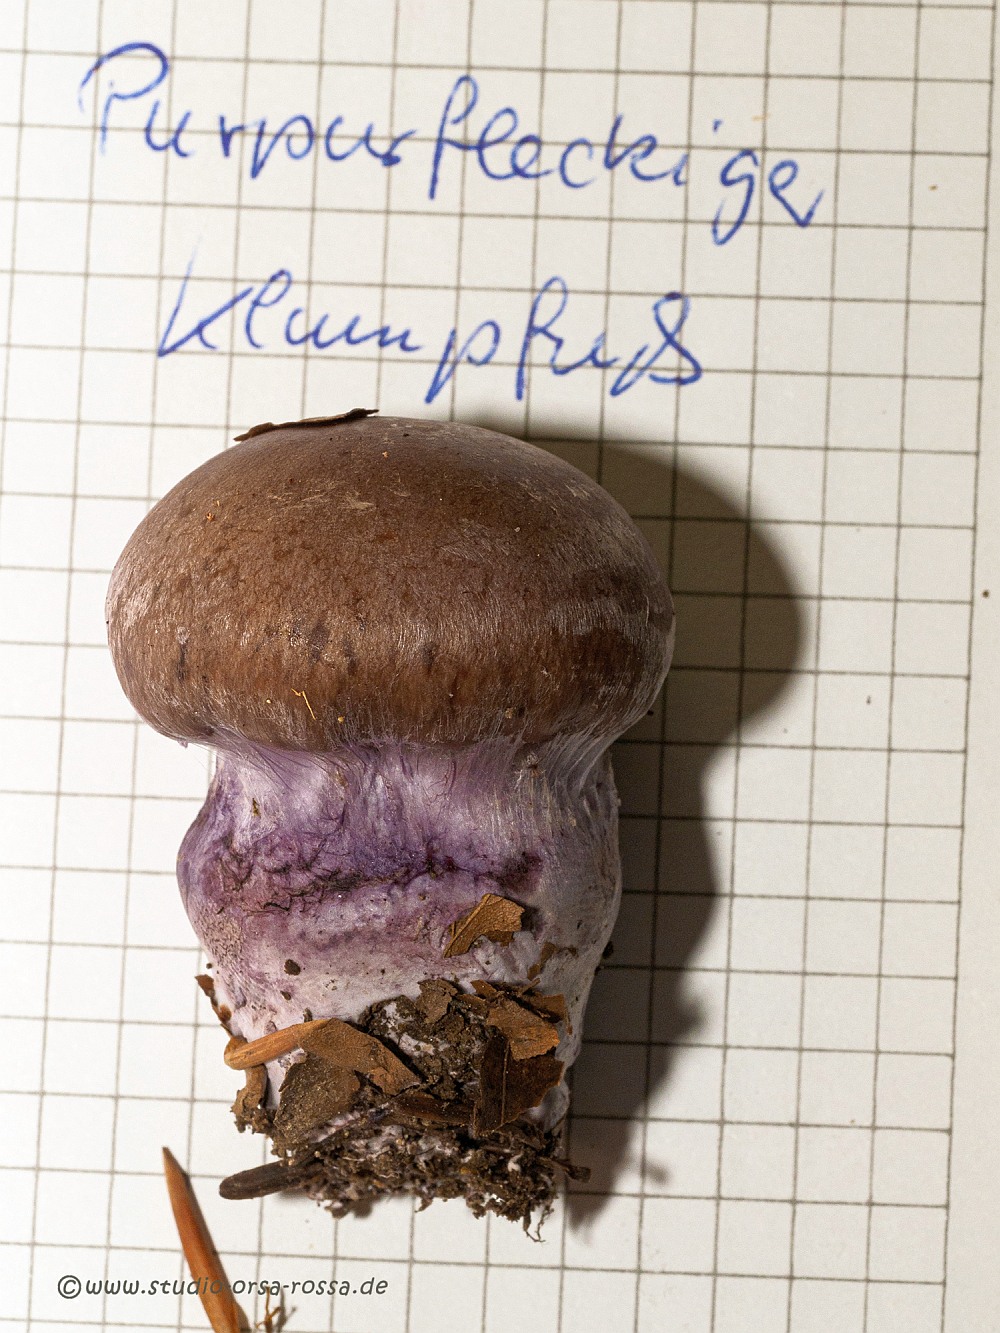 Purpurfleckige
Klumpfuß
©www.studio-orsa-rossa.de